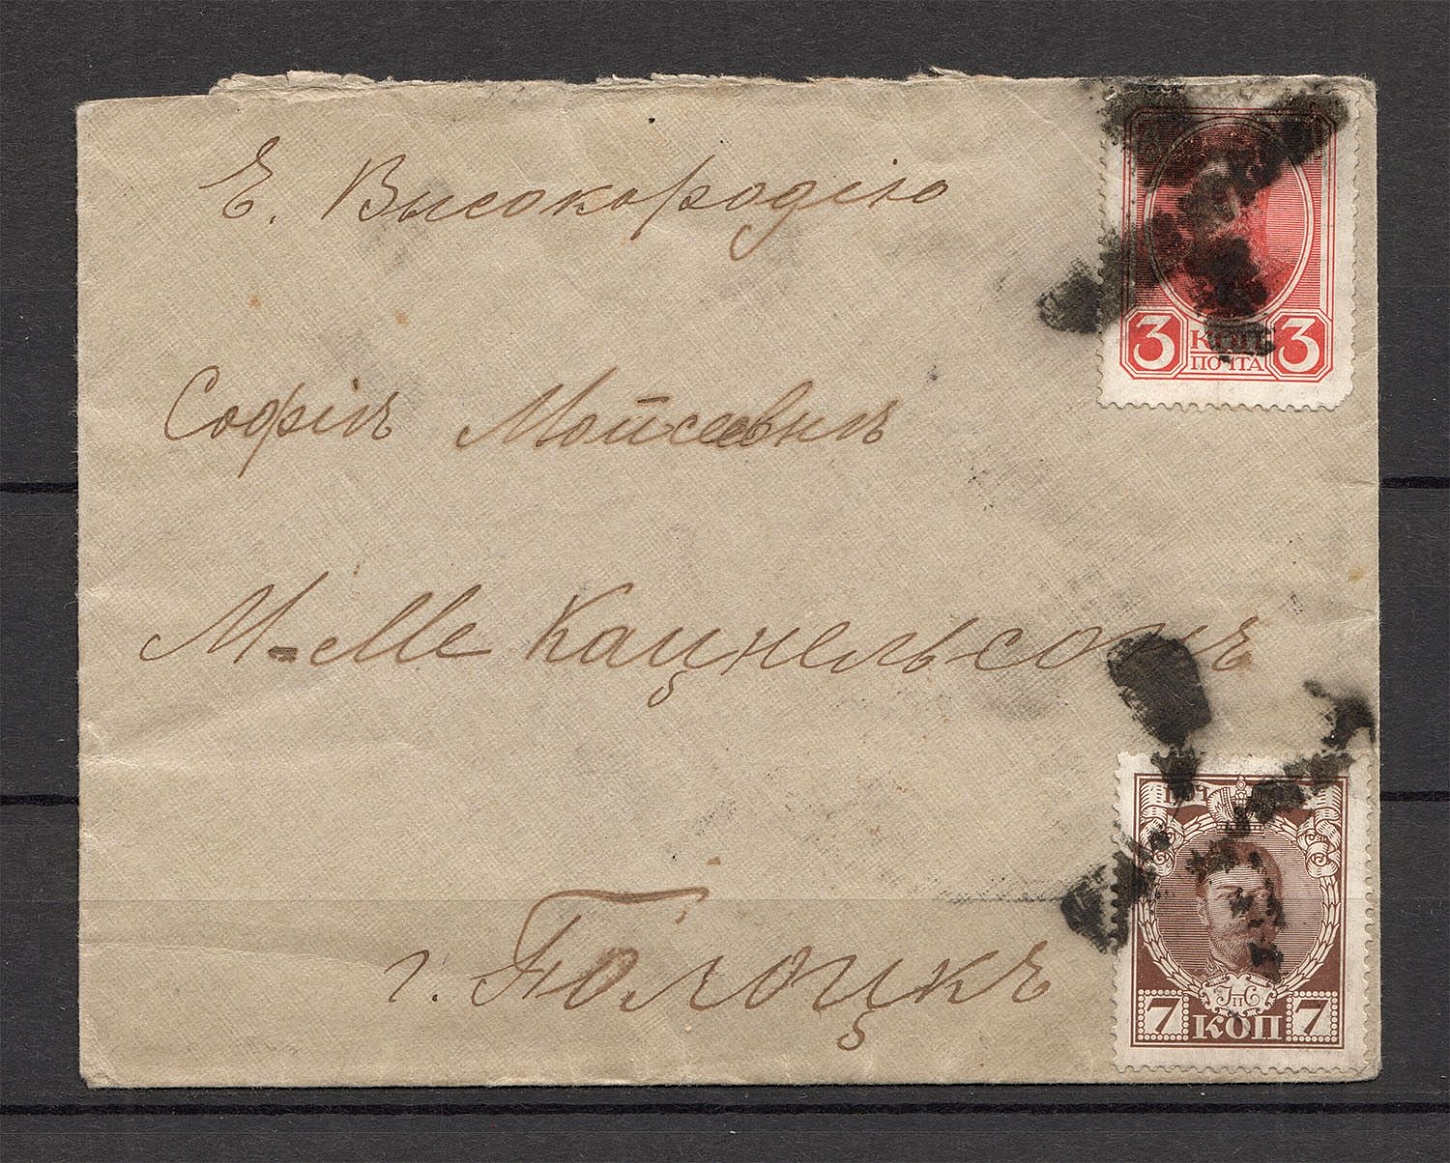 Е. Высокородію
3 КОП 3
ПОЧТА
Софіи Мойсеевнѣ
М-Me Кацнельсонъ
г. Полоцкъ
7 КОП 7